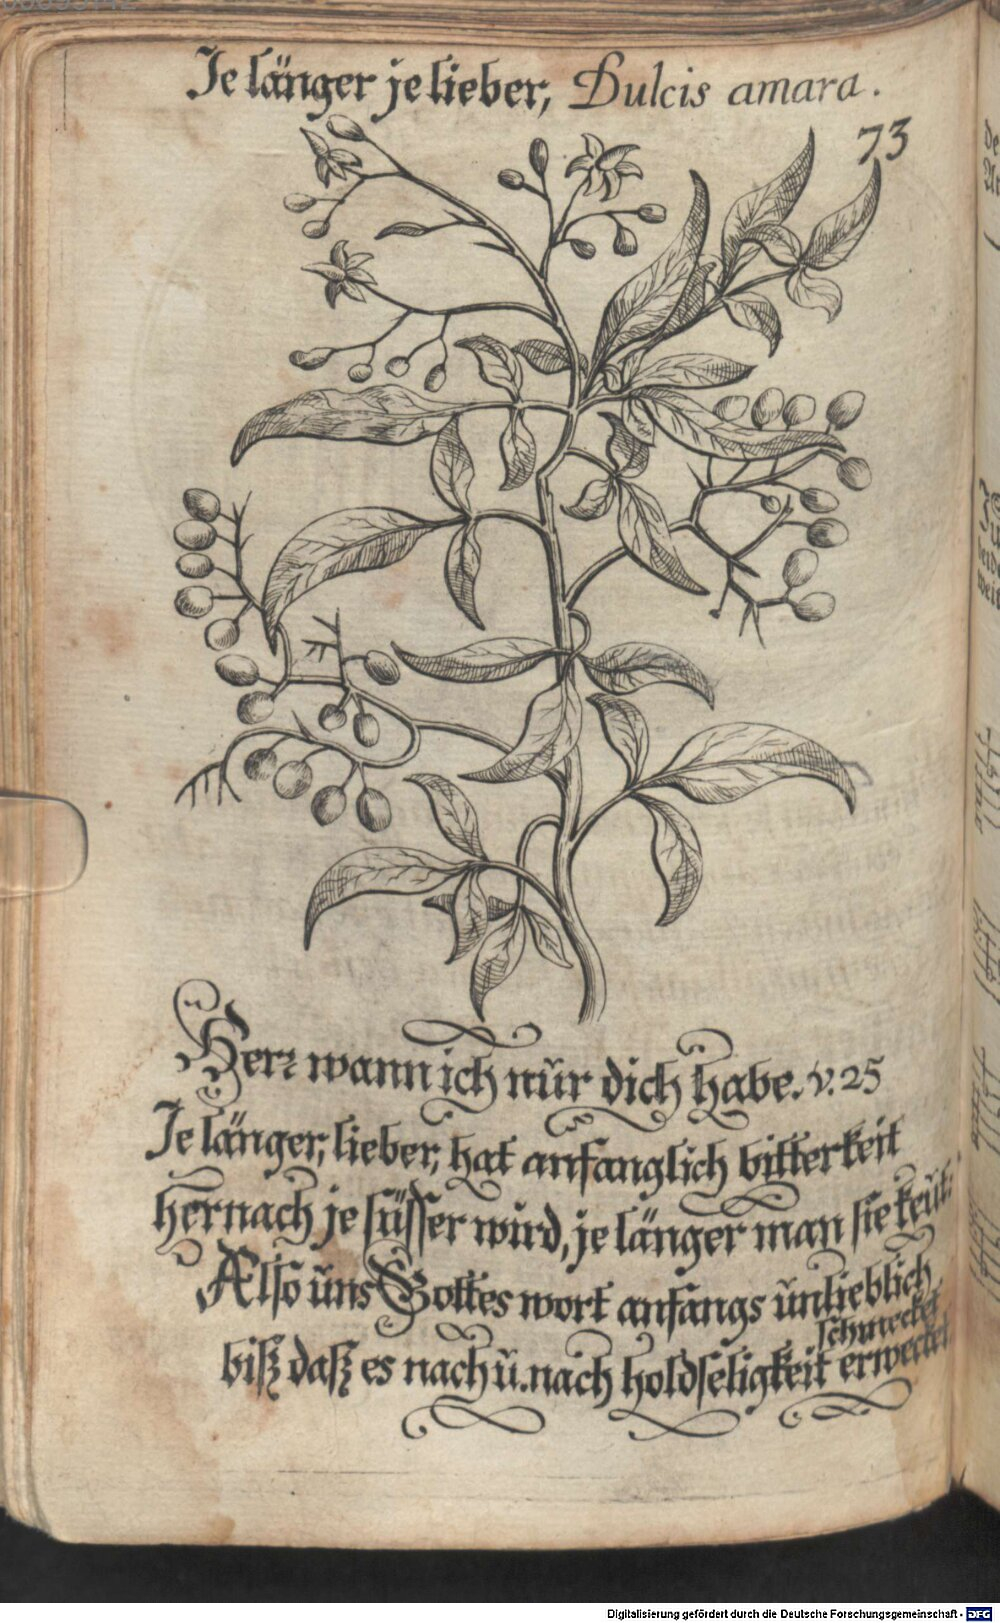 Je länger je lieber, Dulcis amara.
73
Herr wann ich nur dich habe. v. 25
Je länger, lieber, hat anfanglich bitterkeit
hernach je süsser wird, je länger man sie keüt:
Also uns Gottes wort anfangs unlieblich
schmecket
biß daß es nach u. nach holdseligkeit erwecket
Digitalisierung gefördert durch die Deutsche Forschungsgemeinschaft - DFG